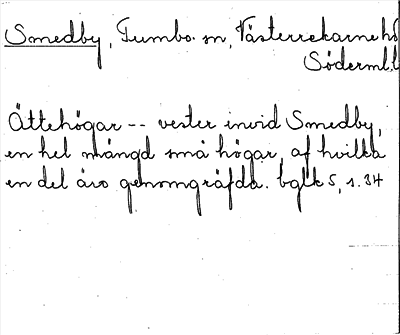 Smedby, Tumbo sn, Västerrekarne hd
Söderml.l
Ättehögar -- vester invid Smedby,
en hel mängd små högar, af hvilka
en del äro genomgräfda. bglk 5, s. 34